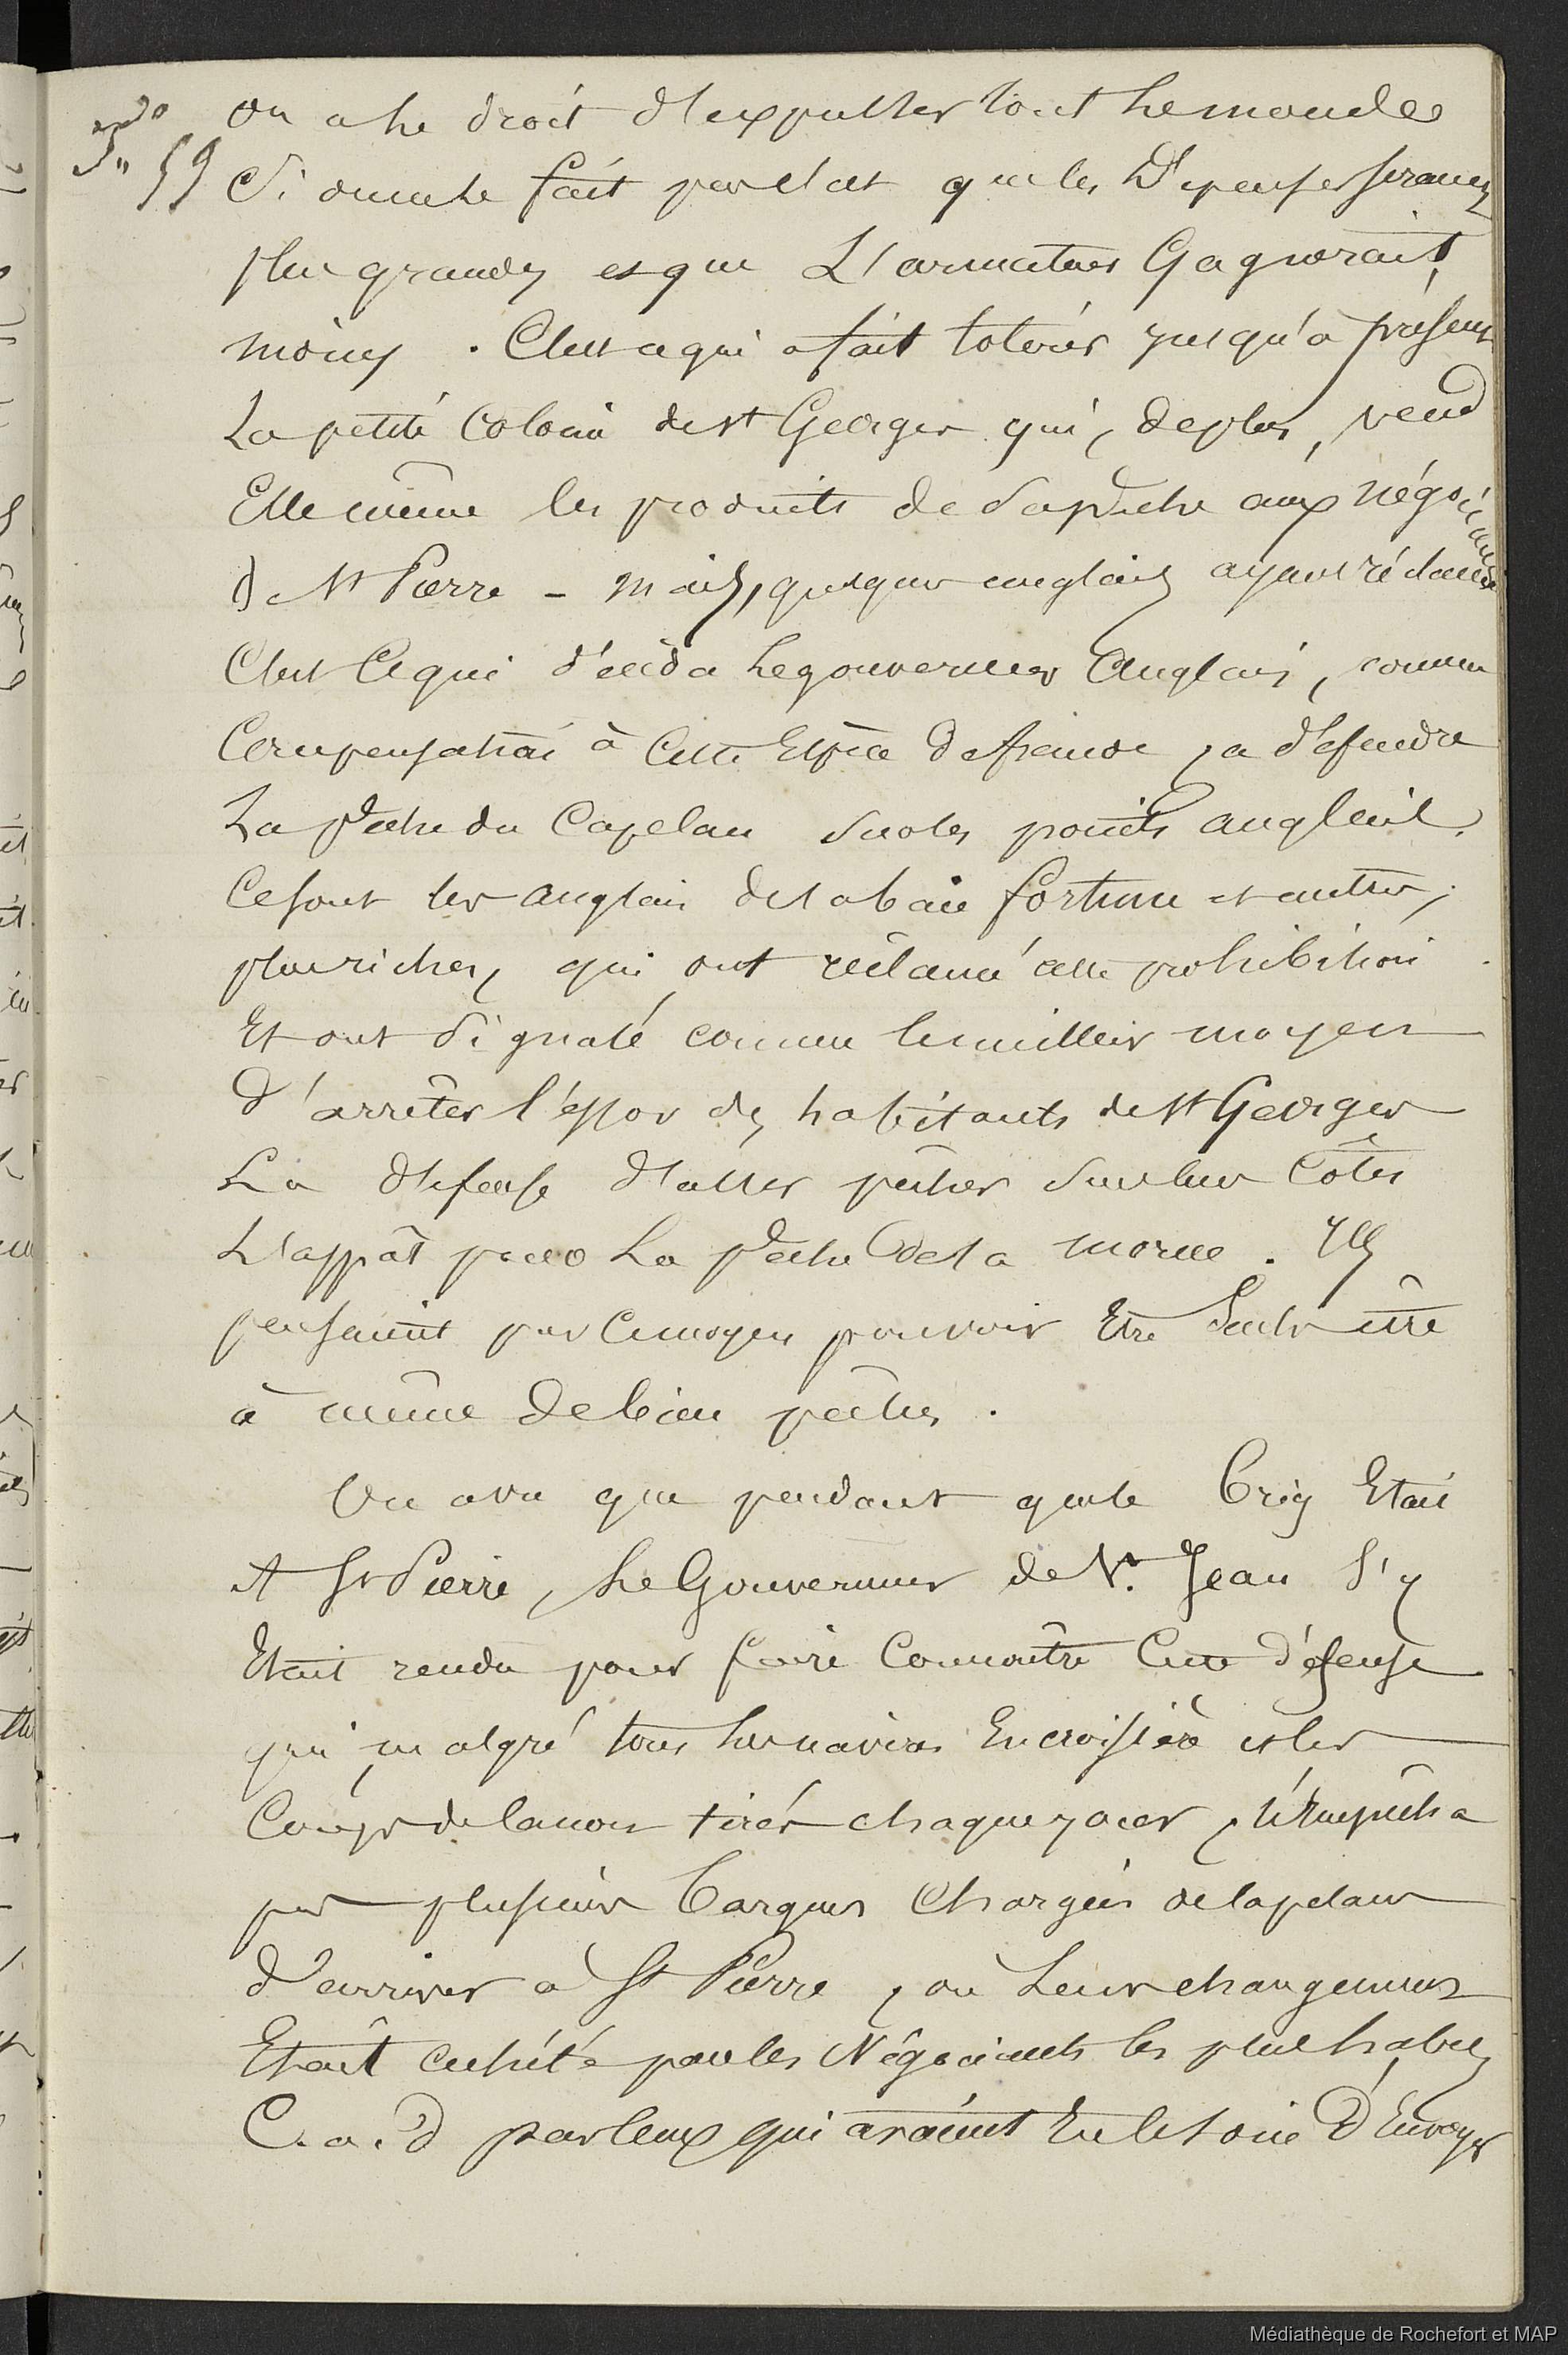 59
On a le droit d'expulser tout le monde
Si on ne le fait pas c'est que les Dépenses seraient
plus grandes et que L'armateur Gagnerait
moins. C'est ce qui a fait tolérer jusqu'à présent
La petite Colonie de St Georges qui, de plus, vend
Elle même les produits de sa pêche aux négociants
de St Pierre - Mais, quelques anglais ayant réclamé
C'est Ce qui décida le gouverneur Anglais, comme
Compensation à Cette Espèce de fraude, a défendre
La pêche du Capelan sur les points anglais.
Ce sont les anglais de la baie fortune et autres,
plus riches, qui ont réclamé cette prohibition
Et ont signalé comme le meilleur moyen
d'arrêter l'essor des habitants de St Georges
La défense d'aller pêcher sur leurs Côtes
L'appât pour La pêche de la morue. Ils
pensaient par Ce moyen pouvoir Etre Seuls être
à même de bien pêcher.
On a vu que pendant que le Brig Etait
A St Pierre, Le Gouverneur de St. Jean s'y
Etait rendu pour faire Connaître Cette défense
qui, malgré tous les navires En croisière et les
Coups de Canon tirés chaque jour, n'Empêcha
pas plusieurs Barques Chargées de Capelans
d'arriver à St Pierre, où Leur changement
Etait acheté par les Négociants les plus habiles
C. a. d par Ceux qui avaient Eu le soin d'Envoyer